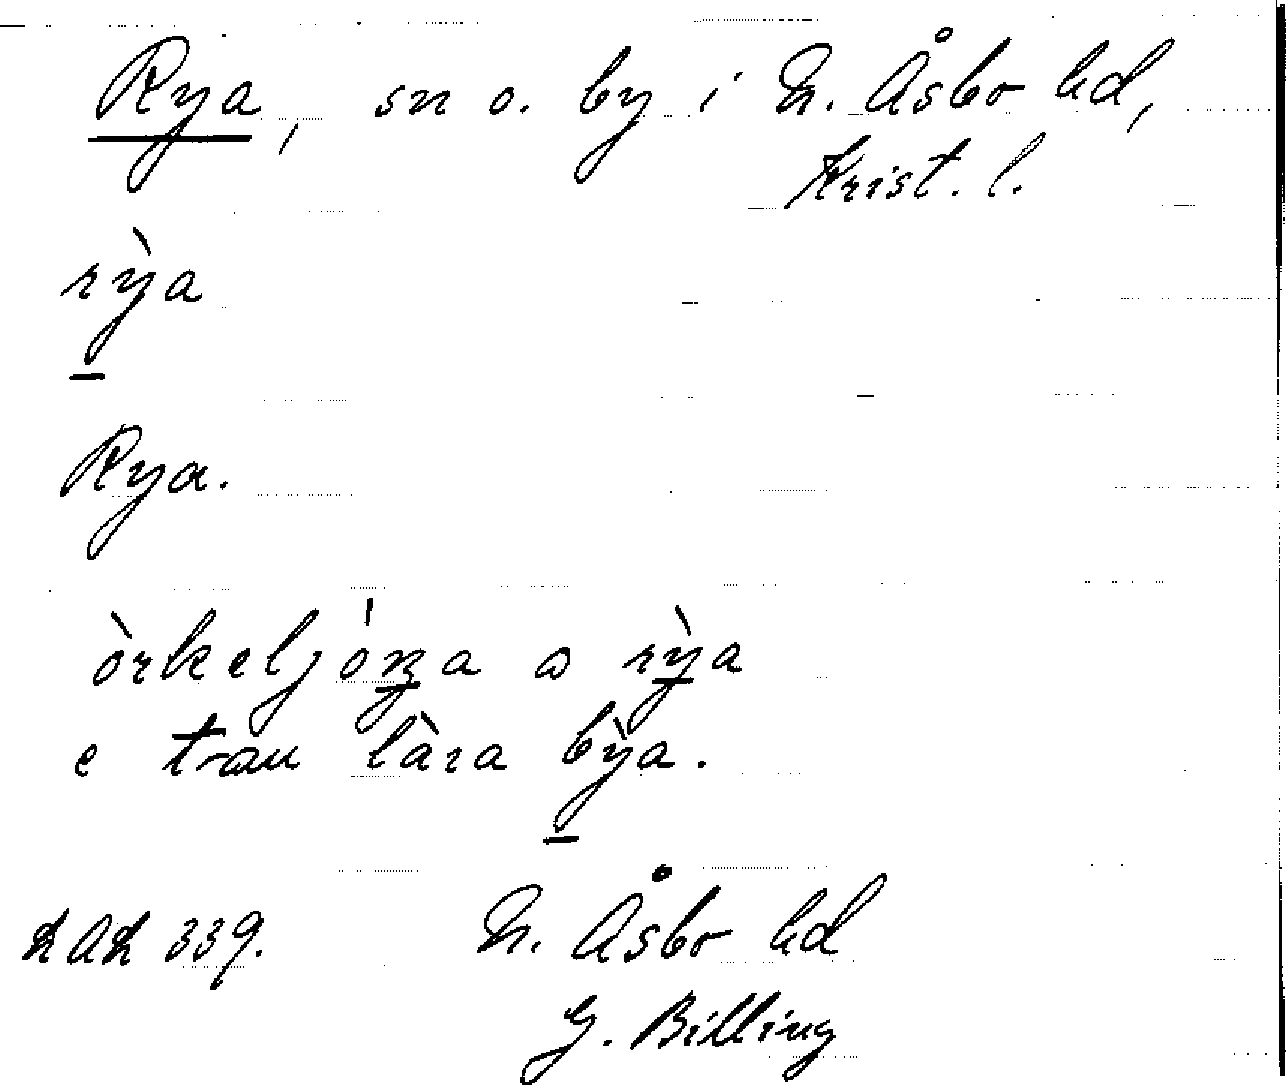 Rya, sn o. by i N. Åsbo hd,
Krist. l.
rỳa
Rya.
òrkeljóŋa o rỳa
e trau làra bỳa.
LAL 339. N. Åsbo hd
G. Billing